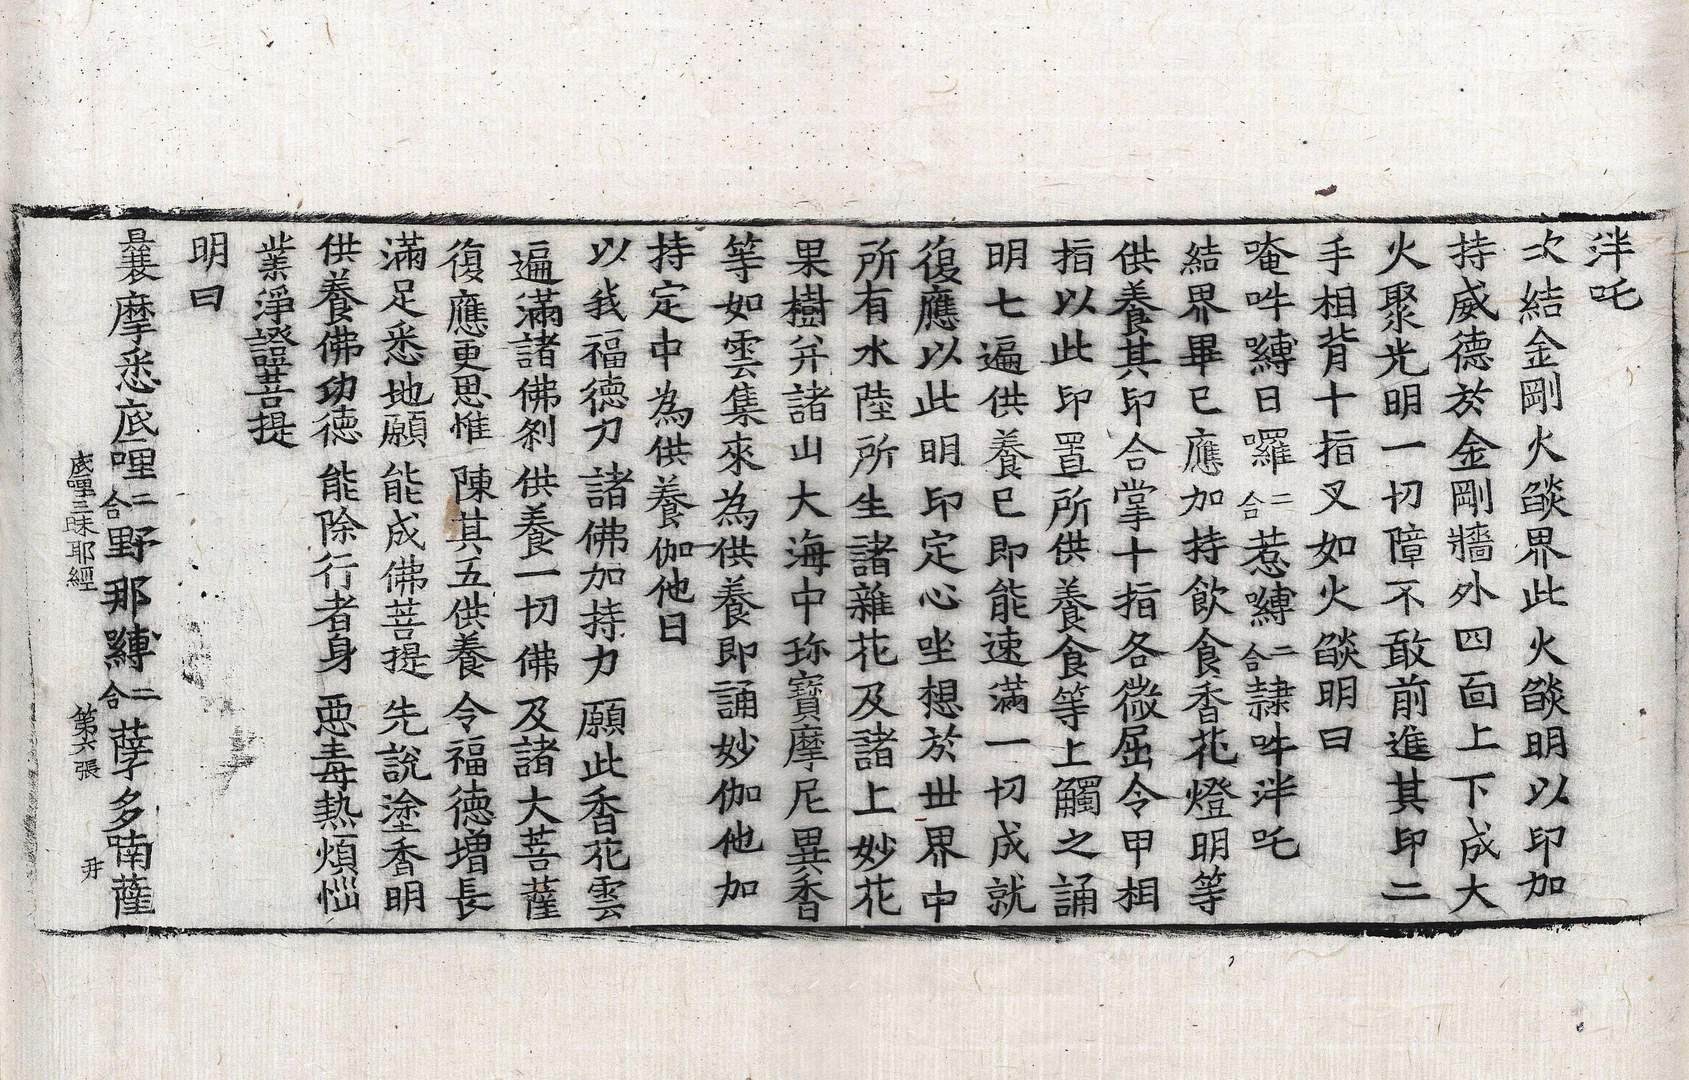 泮吒
次結金剛火燄界此火燄明以印加
持威德於金剛牆外四面上下成大
火聚光明一切障不敢前進其印二
手相背十指叉如火燄明曰
唵吽嚩日囉二合惹嚩二合隷吽泮吒
結界畢已應加持飲食香花燈明等
供養其印合掌十指各微屈令甲相
指以此印置所供養食等上觸之誦
明七遍供養已即能速滿一切成就
復應以此明印定心坐想於丗界中
所有水陸所生諸雜花及諸上妙花
果樹并諸山大海中珎寶摩尼異香
等如雲集來為供養即誦妙伽他加
持定中為供養伽他曰
以我福德力 諸佛加持力 願此香花雲
遍滿諸佛刹 供養一切佛 及諸大菩薩
復應更思惟 陳其五供養 令福德增長
滿足悉地願 能成佛菩提 先說塗香明
供養佛功德 能除行者身 惡毒熱煩惱
業淨證菩提
明曰
曩摩悉底哩二合野那嚩二合孽多喃薩
底哩三昧耶經 第六張